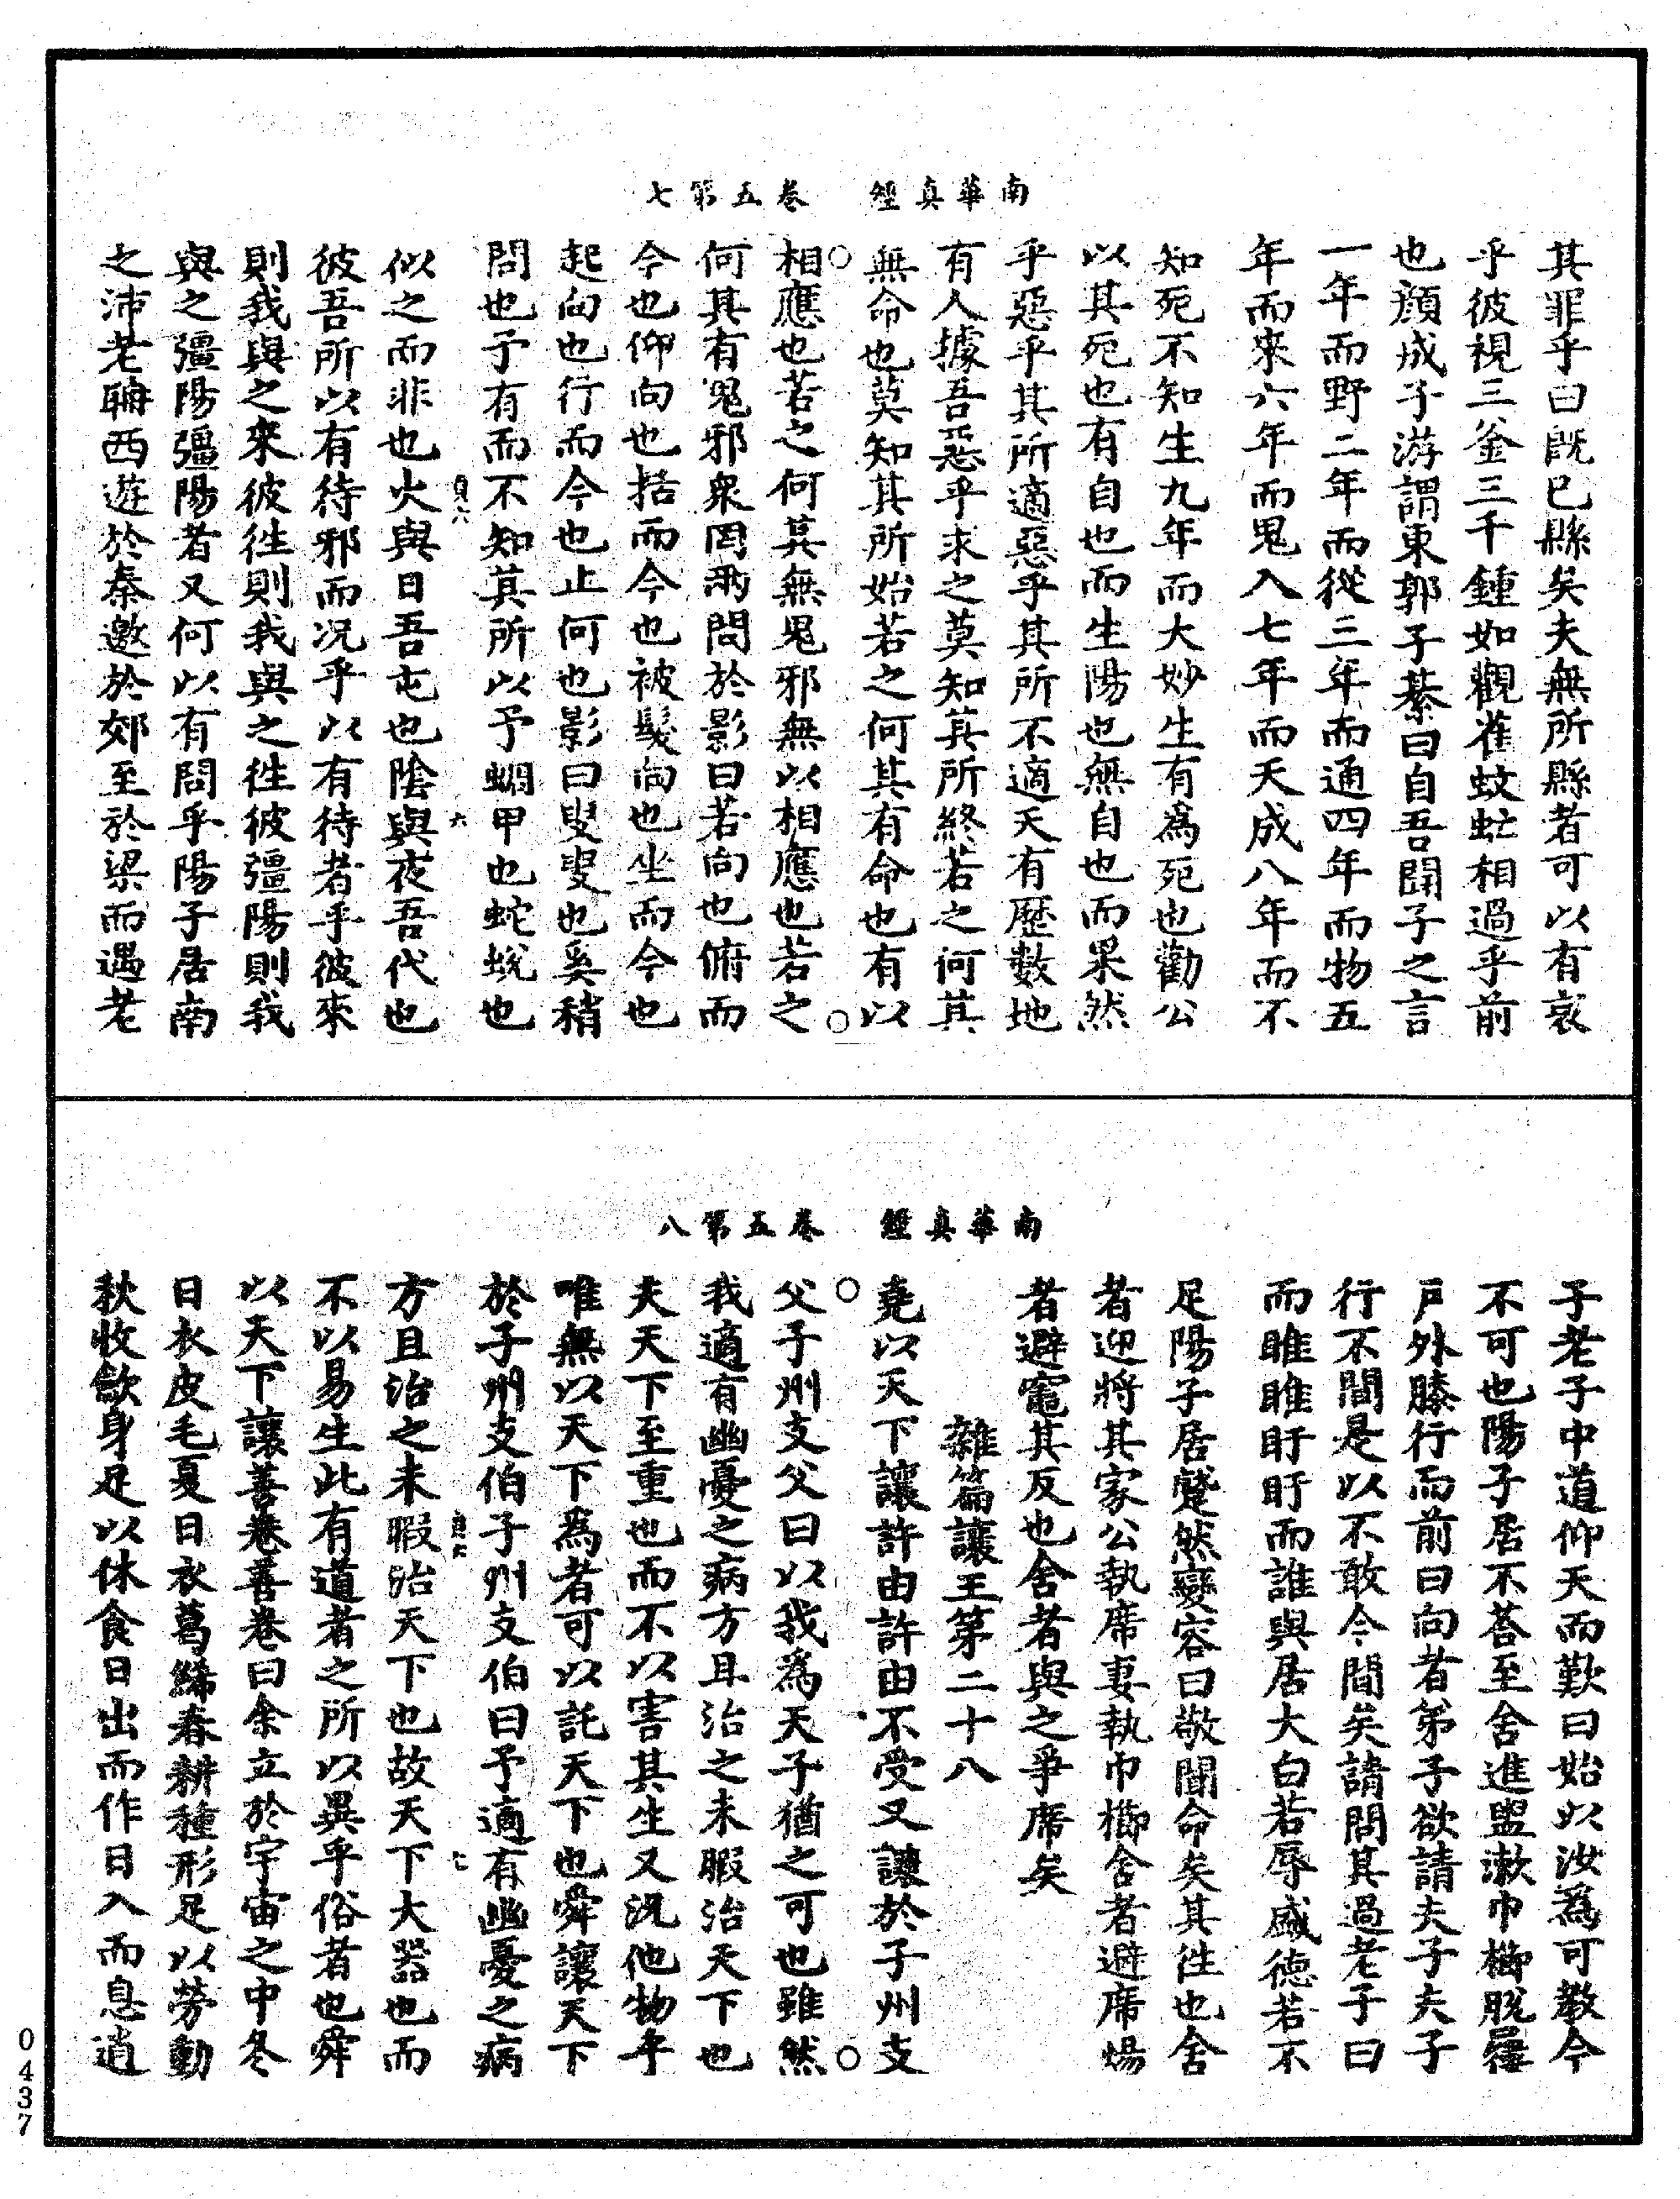 南華真經　卷五第七
其罪乎曰旣已縣矣夫無所縣者可以有哀
乎彼視三釜三千鍾如觀雀蚊虻相過乎前
也顏成子游謂東郭子綦曰自吾聞子之言
一年而野二年而從三年而通四年而物五
年而來六年而鬼入七年而天成八年而不
知死不知生九年而大妙生有爲死也勸公
以其死也有自也而生陽也無自也而果然
乎惡乎其所適惡乎其所不適天有歷數地
有人據吾惡乎求之莫知其所終若之何其
無命也莫知其所始若之何其有命也有以
相應也若之何其無鬼邪無以相應也若之
何其有鬼邪衆罔兩問於影曰若向也俯而
今也仰向也括而今也被髮向也坐而今也
起向也行而今也止何也影曰叟叟也奚稍
問也予有而不知其所以予蜩甲也蛇蛻也
貞六　六
似之而非也火與日吾屯也陰與夜吾代也
彼吾所以有待邪而况乎以有待者乎彼來
則我與之來彼往則我與之往彼彊陽則我
與之彊陽彊陽者又何以有問乎陽子居南
之沛老聃西遊於秦邀於郊至於梁而遇老
南華真經　卷五第八
子老子中道仰天而歎曰始以汝爲可教今
不可也陽子居不荅至舍進盥漱巾櫛脫屨
戶外膝行而前曰向者弟子欲請夫子夫子
行不閒是以不敢今閒矣請問其過老子曰
而睢睢盱盱而誰與居大白若辱盛德若不
足陽子居蹵然變容曰敬聞命矣其往也舍
者迎將其家公執席妻執巾櫛舍者避席煬
者避竈其反也舍者與之爭席矣
雜篇讓王第二十八
堯以天下讓許由許由不受又讓於子州支
父子州支父曰以我爲天子猶之可也雖然
我適有幽憂之病方且治之未暇治天下也
夫天下至重也而不以害其生又況他物乎
唯無以天下爲者可以託天下也舜讓天下
於子州支伯子州支伯曰予適有幽憂之病
貞六　七
方且治之未暇治天下也故天下大器也而
不以易生此有道者之所以異乎俗者也舜
以天下讓善卷善卷曰余立於宇宙之中冬
日衣皮毛夏日衣葛絺春耕種形足以勞動
秋收歛身足以休食日出而作日入而息逍
0437